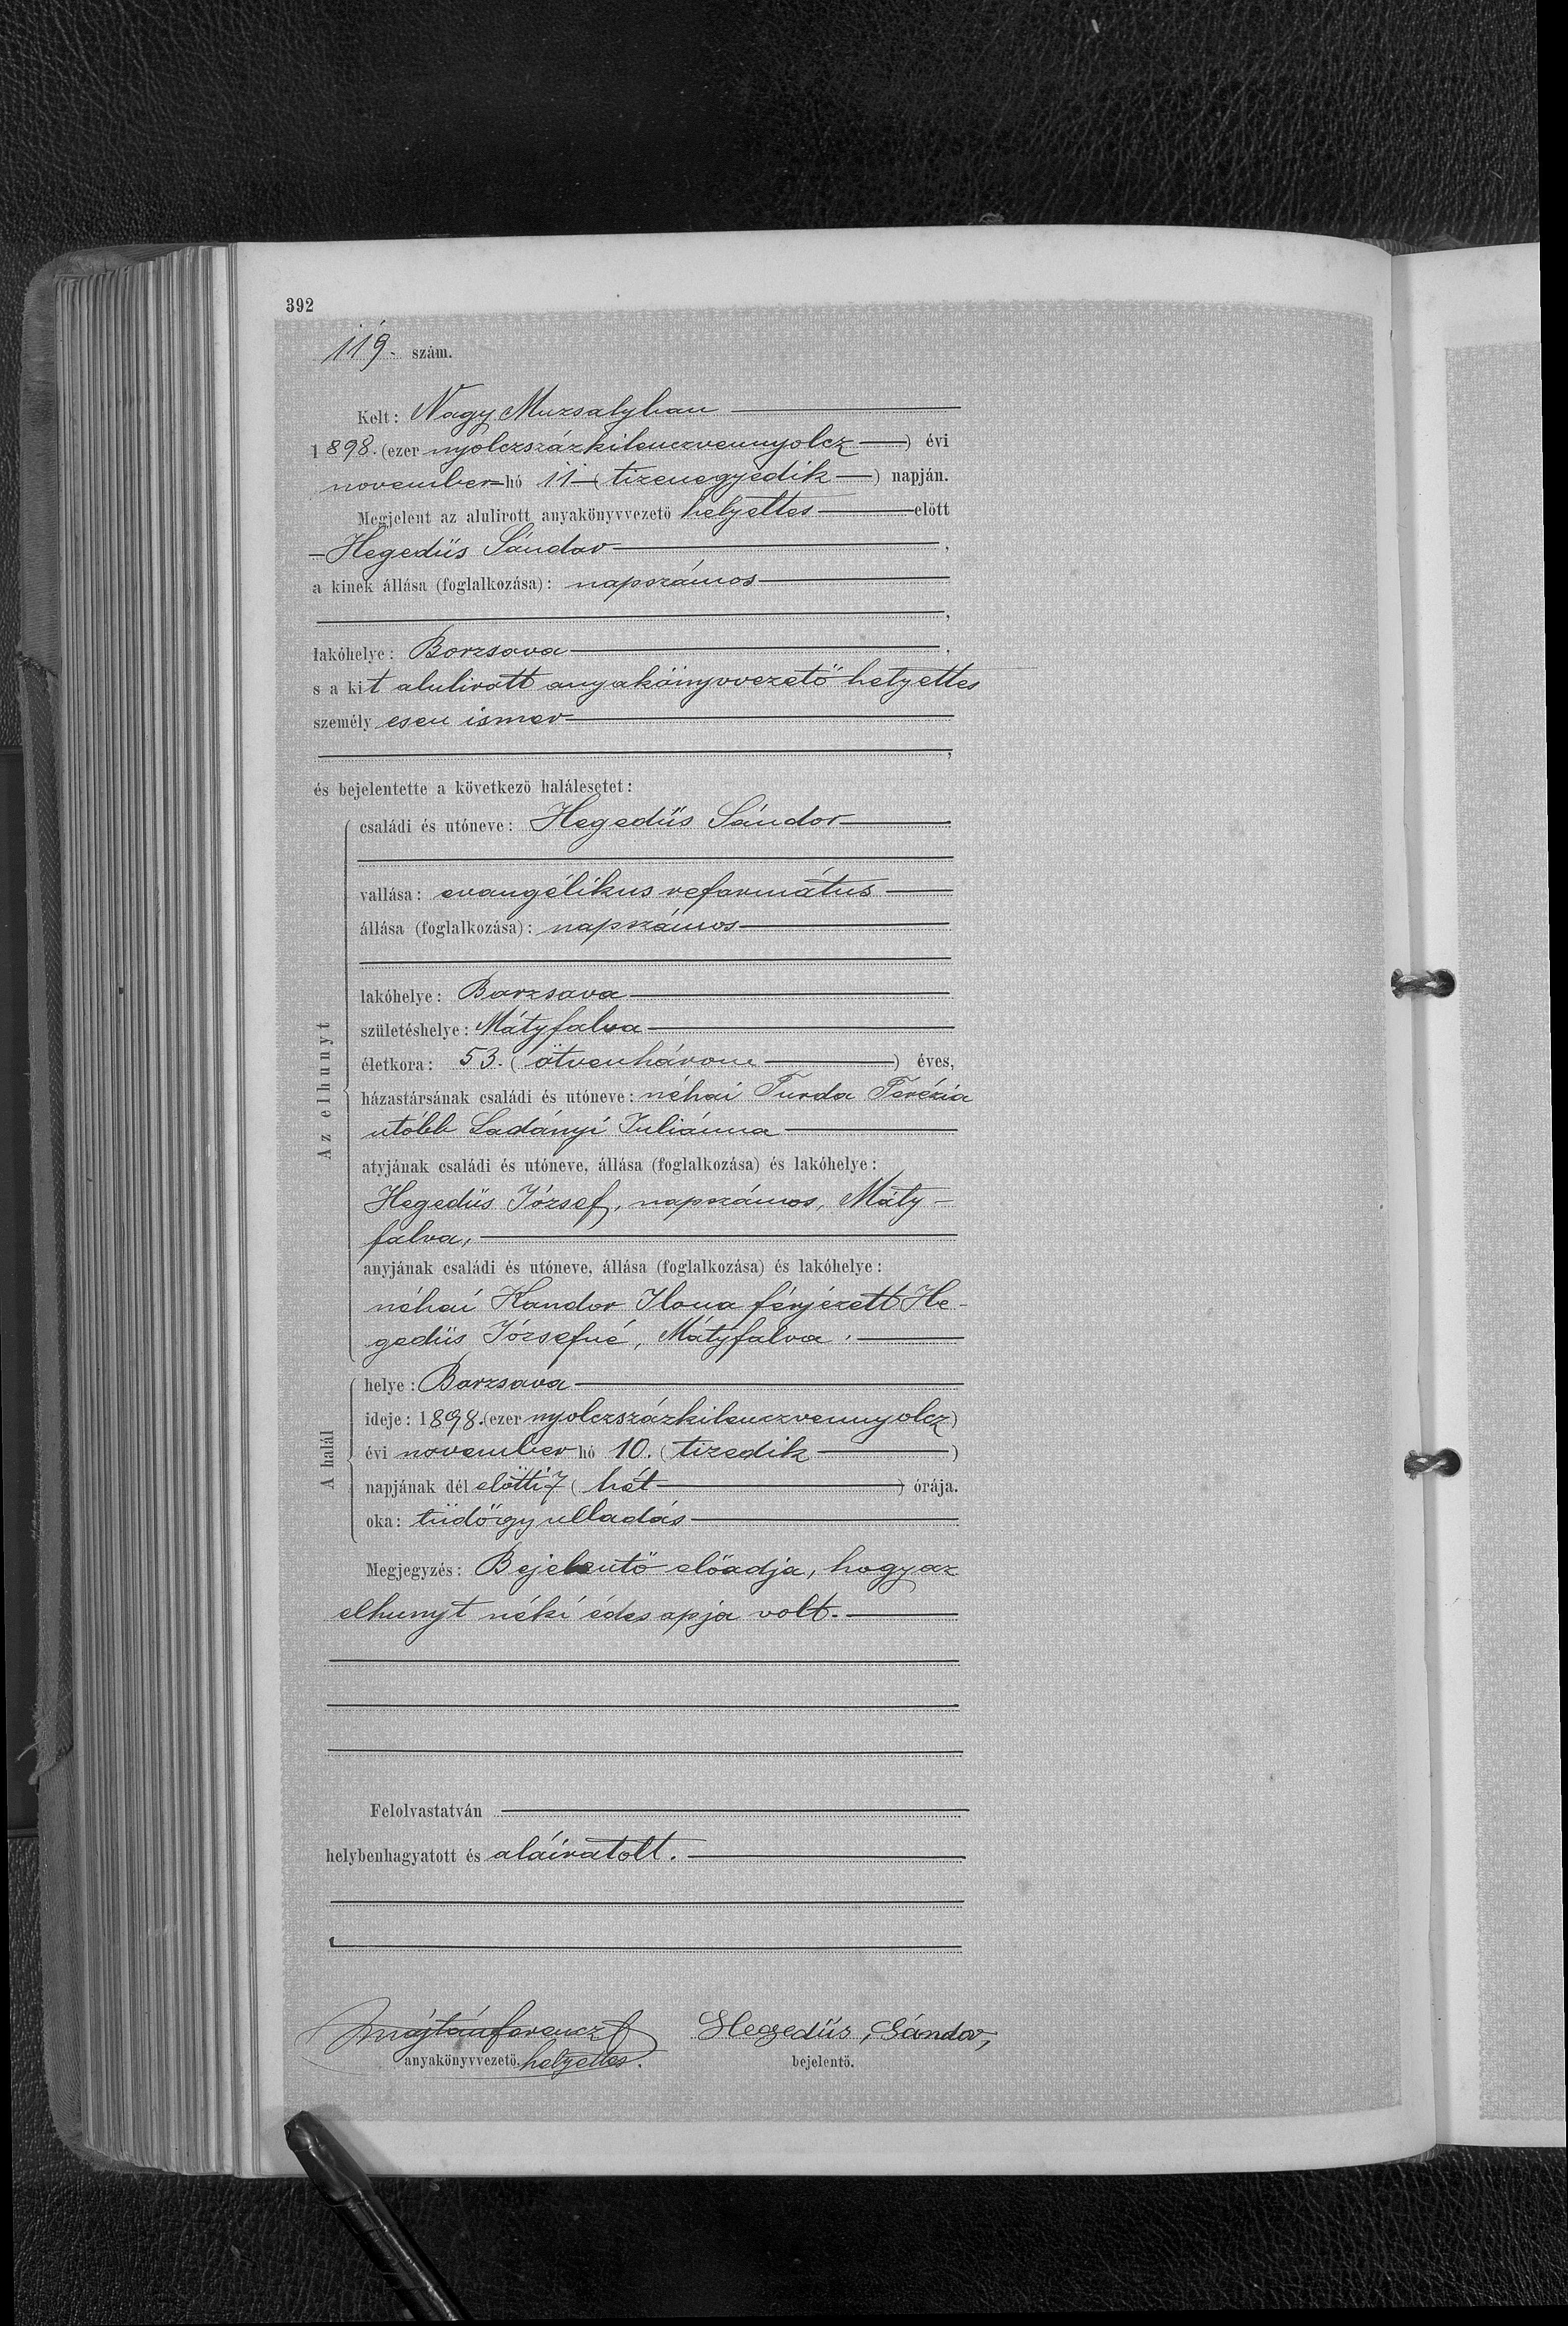 392
119. szám.
Kelt: Nagy Muzsalyban
1898. (ezer nyolczszázkilenczvennyolcz) évi
november hó 11 (tizenegyedik) napján.
Megjelent az alulirott anyakönyvvezető helyettes előtt
Hegedüs Sándor,
a kinek állása (foglalkozása): napszámos
,
lakóhelye: Borzsova,
s a kit alulirott anyakönyvvezető helyettes
személyesen ismer
,
és bejelentette a következő halálesetet:
Az elhunyt
családi és utóneve: Hegedüs Sándor
vallása: evangélikus református
állása (foglalkozása): napszámos
lakóhelye: Borzsova
születéshelye: Mátyfalva
életkora: 53. (ötvenhárom) éves,
házastársának családi és utóneve: néhai Turda Terézia
utóbb Ladányi Juliánna
atyjának családi és utóneve, állása (foglalkozása) és lakóhelye:
Hegedüs József, napszámos, Máty-
falva,
anyjának családi és utóneve, állása (foglalkozása) és lakóhelye:
néhai Kandor Ilona férjezett He-
gedüs Józsefné, Mátyfalva.
A halál
helye: Borzsova
ideje: 1898. (ezer nyolczszázkilenczvennyolcz)
évi november hó 10. (tizedik)
napjának dél előtti 7 (hét) órája.
oka: tüdőgyulladás
Megjegyzés: Bejelentő előadja, hogy az
elhunyt néki édes apja volt.
Felolvastatván
helybenhagyatott és aláiratott.
Majtán Ferencz Hegedüs, Sándor,
anyakönyvvezető helyettes. bejelentő.